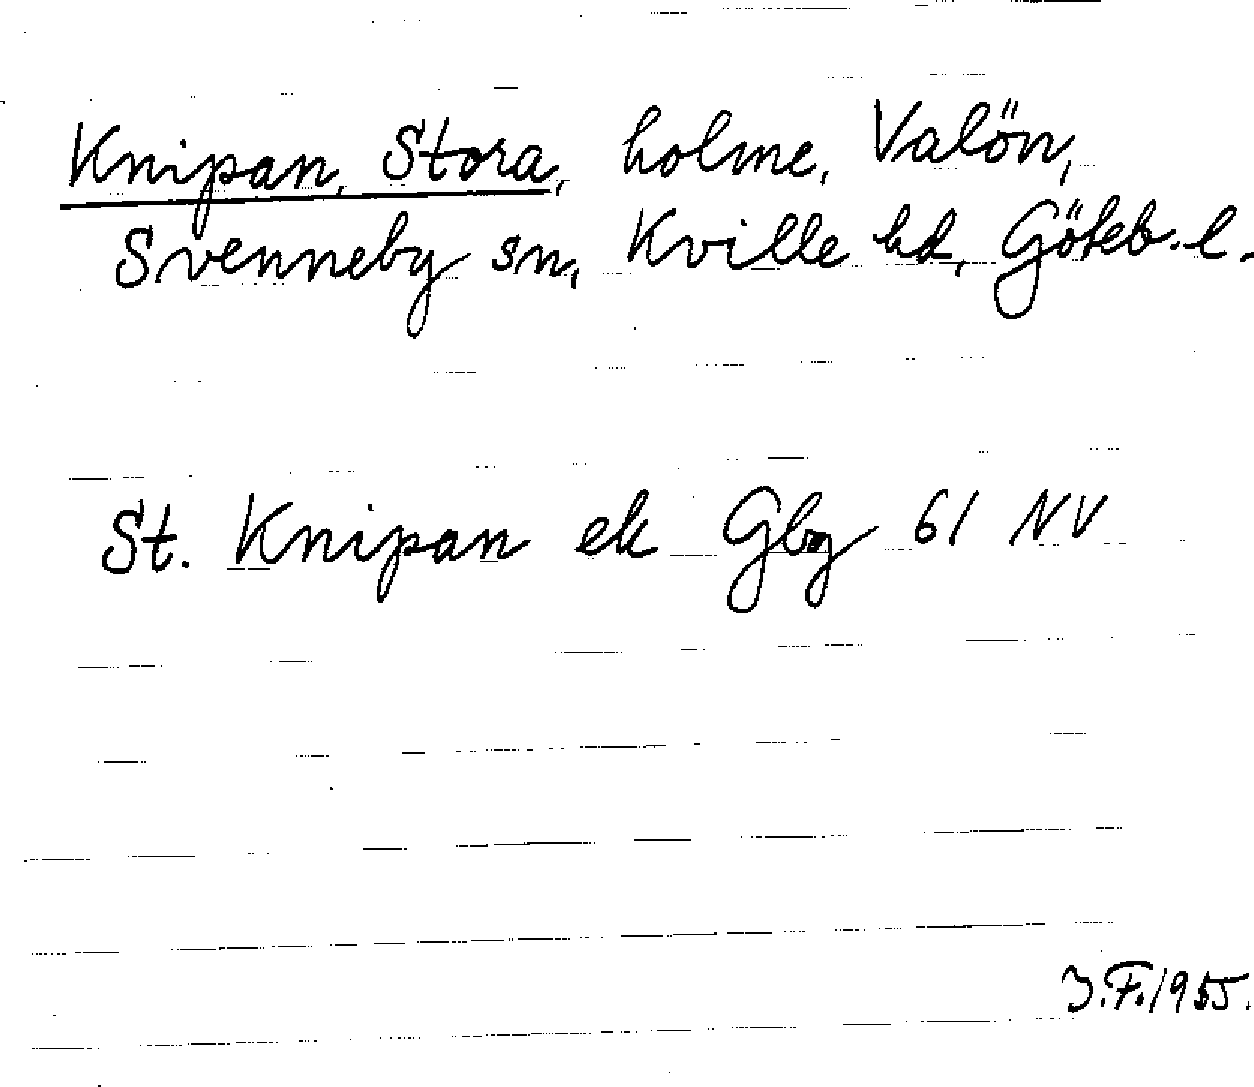 Knipan, Stora, holme, Valön,
Svenneby sn, Kville hd, Göteb. l.
St. Knipan ek Gbg 61 NV
J.F. 1955.